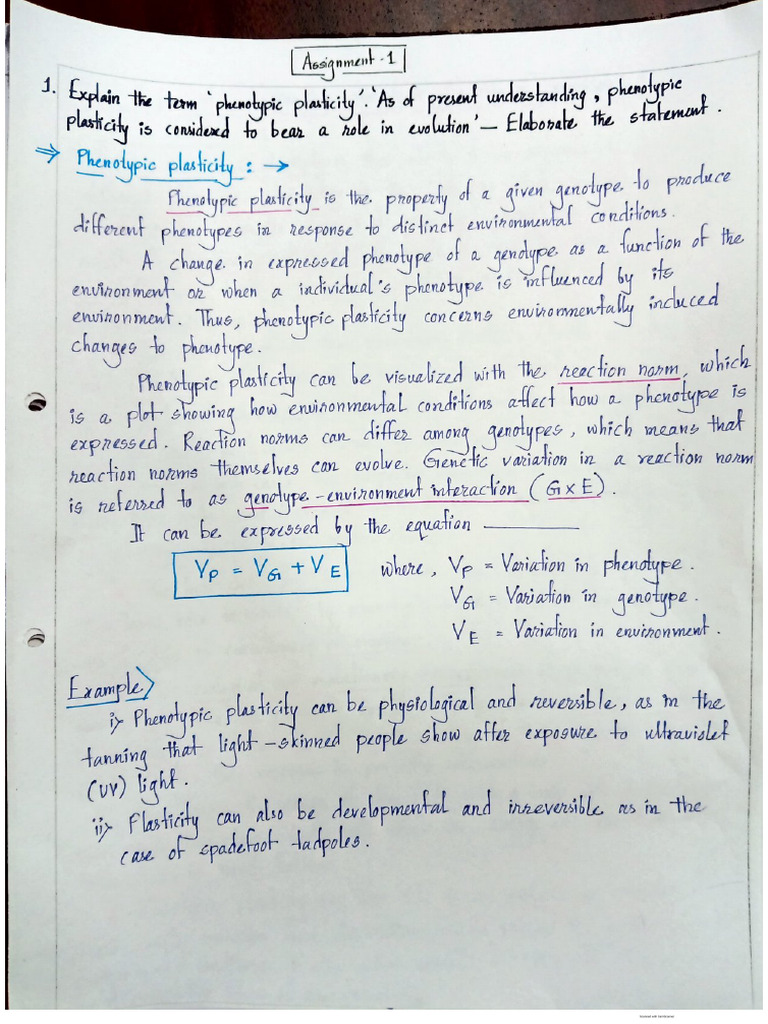 Assignment - 1
1. Explain the term 'phenotypic plasticity'. 'As of present understanding, phenotypic
plasticity is considered to bear a role in evolution' — Elaborate the statement.
⇒ Phenotypic plasticity : →
Phenotypic plasticity is the property of a given genotype to produce
different phenotypes in response to distinct environmental conditions.
A change in expressed phenotype of a genotype as a function of the
environment or when a individual's phenotype is influenced by its
environment. Thus, phenotypic plasticity concerns environmentally induced
changes to phenotype.
Phenotypic plasticity can be visualized with the reaction norm, which
is a plot showing how environmental conditions affect how a phenotype is
expressed. Reaction norms can differ among genotypes, which means that
reaction norms themselves can evolve. Genetic variation in a reaction norm
is referred to as genotype - environment interaction (G x E).
It can be expressed by the equation ———
VP = VG + VE where, VP = Variation in phenotype.
VG = Variation in genotype.
VE = Variation in environment.
Example⟩
i⟩ Phenotypic plasticity can be physiological and reversible, as in the
tanning that light - skinned people show after exposure to ultraviolet
(UV) light.
ii⟩ Plasticity can also be developmental and irreversible as in the
case of spadefoot tadpoles.